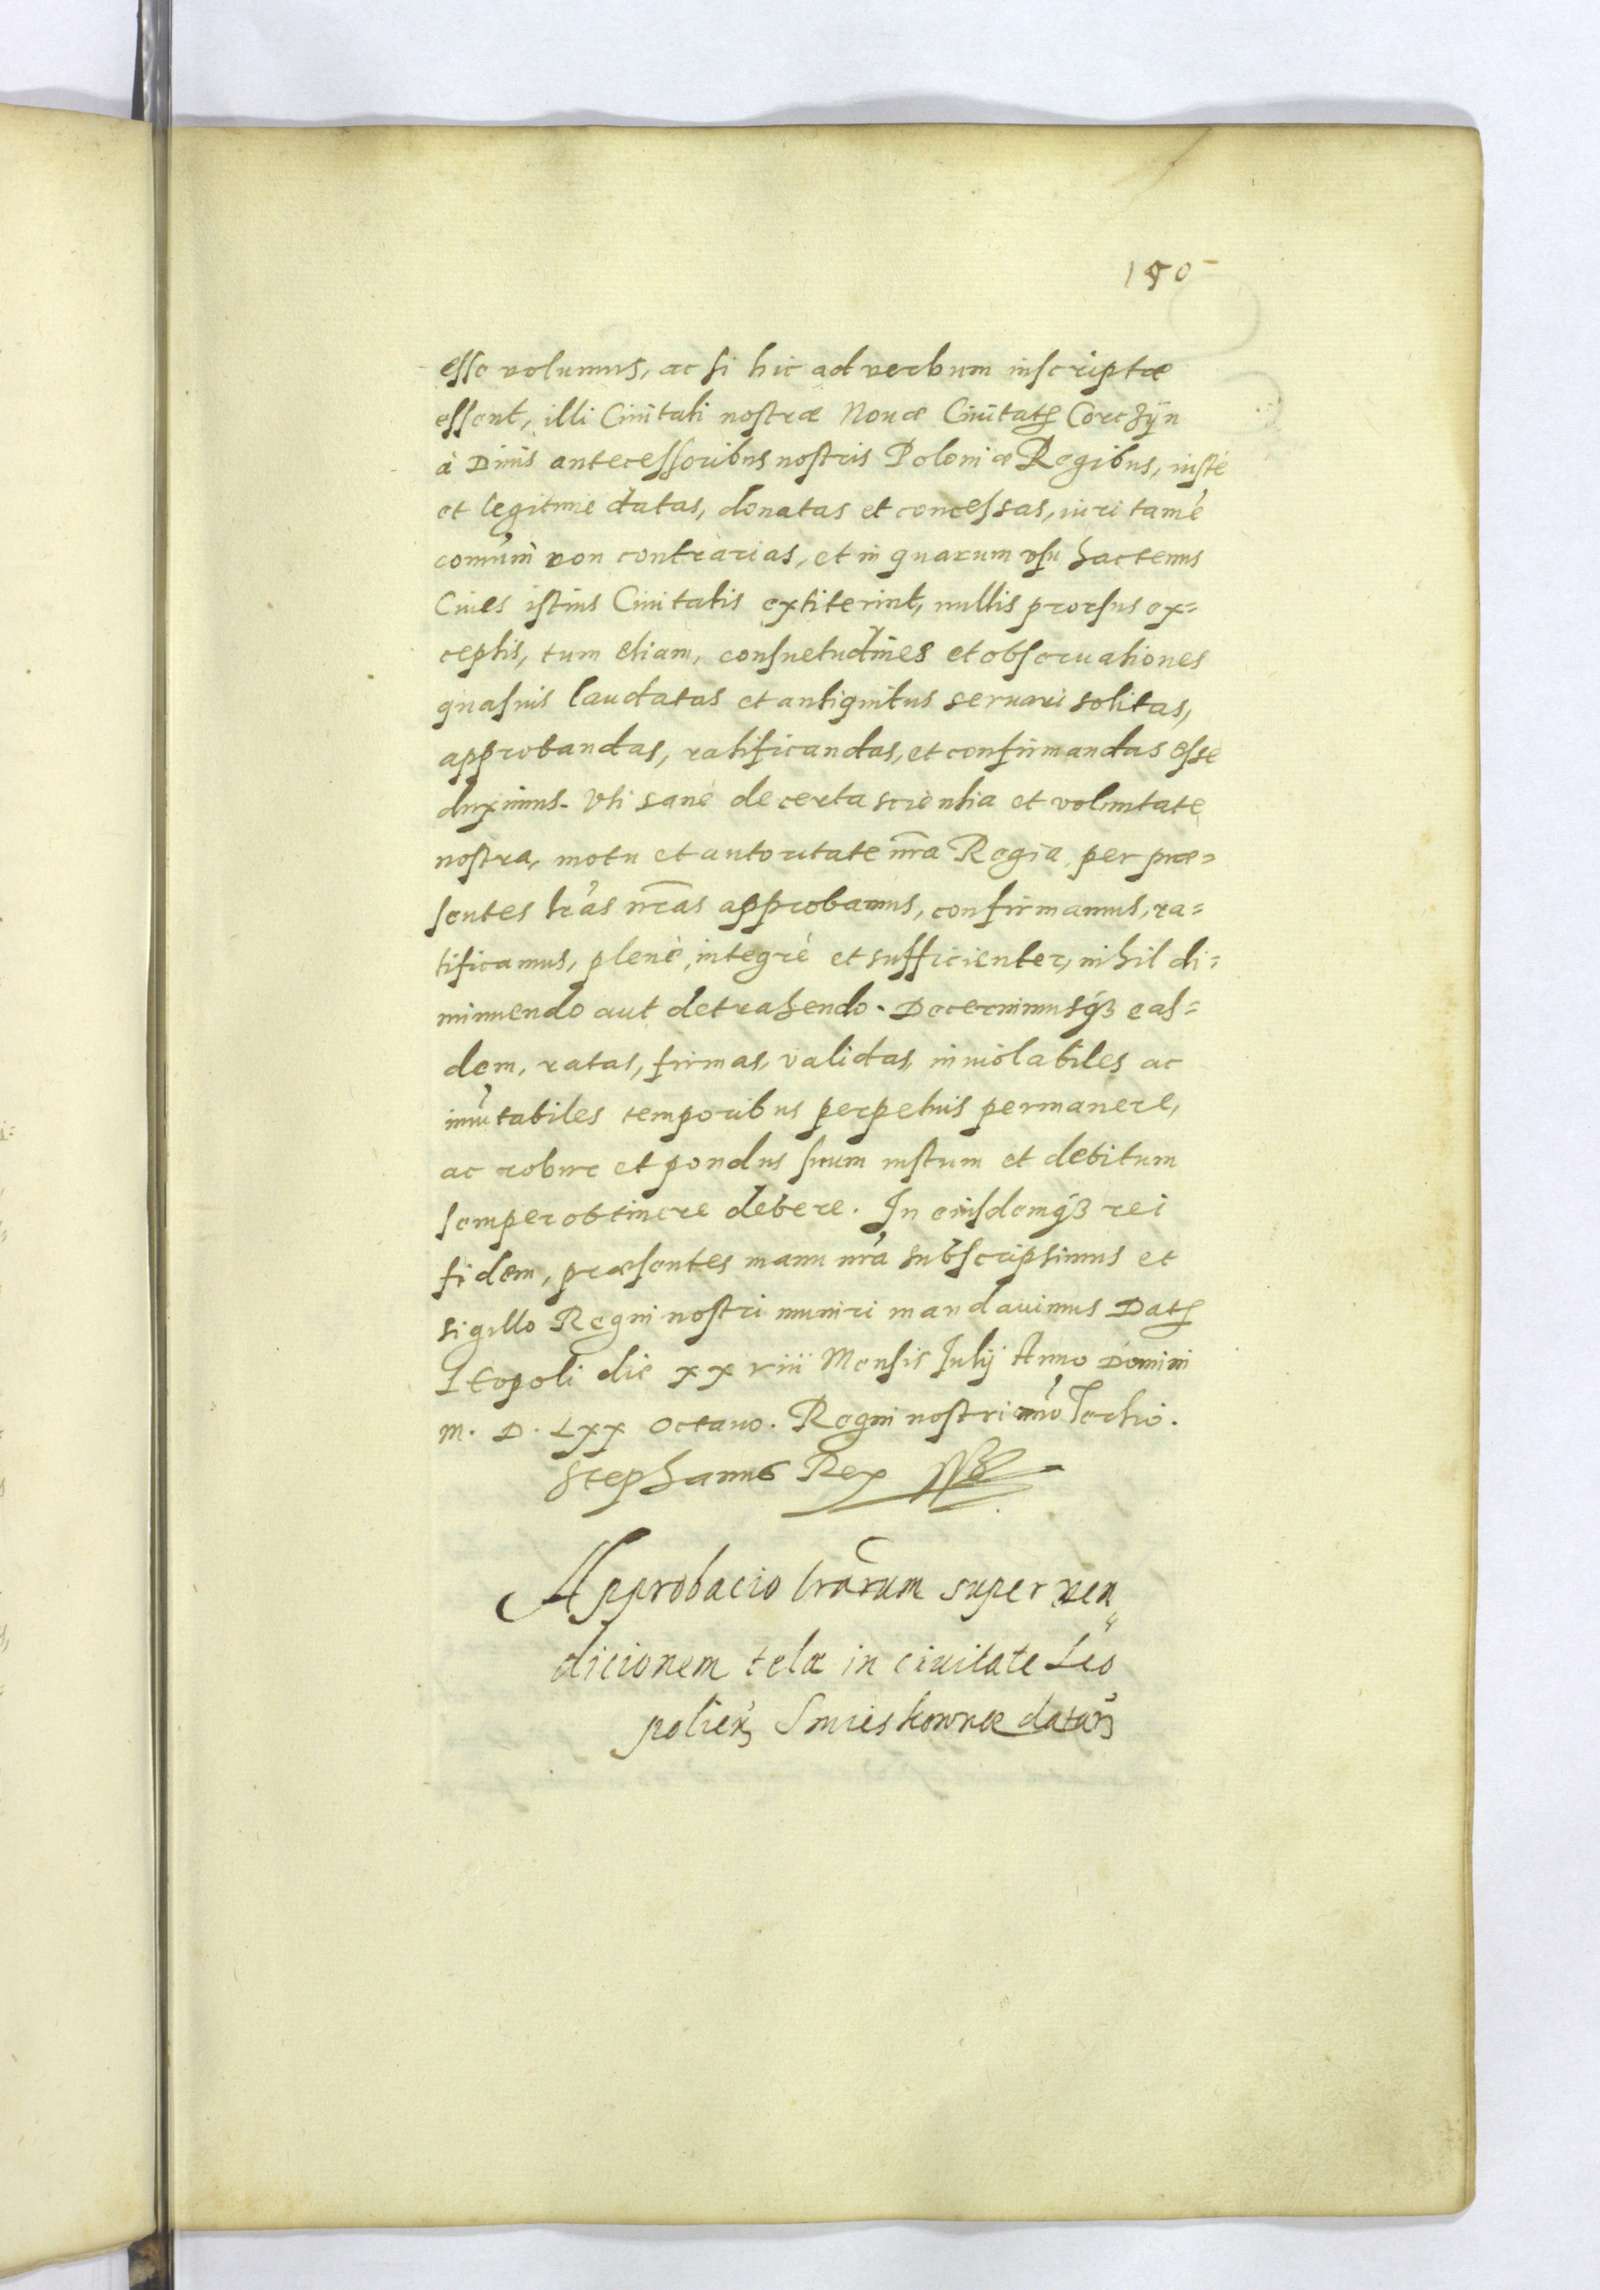 150
esse volumus, ac si hic ad verbum inscriptæ
essent, illi Ciuitati nostræ Nouæ Ciuitatis Corczÿn
à Diuis antecessoribus nostris Poloniæ Regibus, iustè
et legitimè datas, donatas et concessas, iuri tamẽ
comũni non contrarias, et in quarum vsu hactenus
Ciues istius Ciuitatis extiterint, nullis prorsus ex=
ceptis, tum etiam, consuetudines et obseruationes
quasuis laudatas et antiquitus seruari solitas,
approbandas, ratificandas, et confirmandas esse
duximus. Vti sanè de certa scientia et voluntate
nostra, motu et autoritate nr̃a Regia per præ=
sentes lr̃as nr̃as approbamus, confirmamus, ra=
tificamus, plenè, integrè et sufficienter, nihil di=
minuendo aut detrahendo. Decernimusq3 eas=
dem, ratas, firmas, validas, inuiolabiles ac
im̃utabiles temporibus perpetuis permanere,
ac robur et pondus suum iustum et debitum
semper obtinere debere. In eiusdemq3 rei
fidem, præsentes manu nr̃a subscripsimus et
sigillo Regni nostri muniri mandauimus Dat
Leopoli die xx viii Mensis Julij Anno Domini
M. D. Lxx Octauo. Regni nostri añno Tertio.
Stephanus Rex
Approbacio lr̃arum super ven
dicionem telæ in ciuitate Leo
polien̾ Smieskownæ datar̾